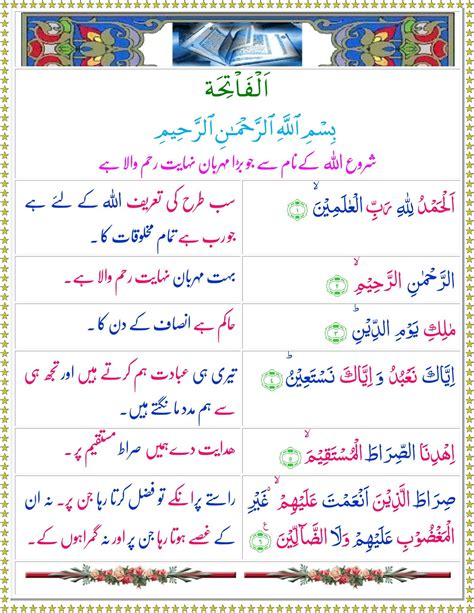 اَلْفَاتِحَة
بِسْمِ اللهِ الرَّحْمٰنِ الرَّحِيْمِ
شروع اللہ کے نام سے جو بڑا مہربان نہایت رحم والا ہے
اَلْحَمْدُ لِلّٰهِ رَبِّ الْعٰلَمِيْنَۙ ۱
سب طرح کی تعریف اللہ کے لئے ہے
جو رب ہے تمام مخلوقات کا۔
الرَّحْمٰنِ الرَّحِيْمِۙ ۲
بہت مہربان نہایت رحم والا ہے۔
مٰلِكِ يَوْمِ الدِّيْنِؕ ۳
حاکم ہے انصاف کے دن کا۔
اِيَّاكَ نَعْبُدُ وَ اِيَّاكَ نَسْتَعِيْنُؕ ۴
تیری ہی عبادت ہم کرتے ہیں اور تجھ ہی
سے ہم مدد مانگتے ہیں۔
اِهْدِنَا الصِّرَاطَ الْمُسْتَقِيْمَۙ ۵
ھدایت دے ہمیں صراط مستقیم پر۔
صِرَاطَ الَّذِيْنَ اَنْعَمْتَ عَلَيْهِمْ ۙ غَيْرِ
الْمَغْضُوْبِ عَلَيْهِمْ وَلَا الضَّآلِّيْنَ ۶
راستے پر انکے تو فضل کرتا رہا جن پر۔ نہ ان
کے غصے ہوتا رہا جن پر اور نہ گمراہوں کے۔